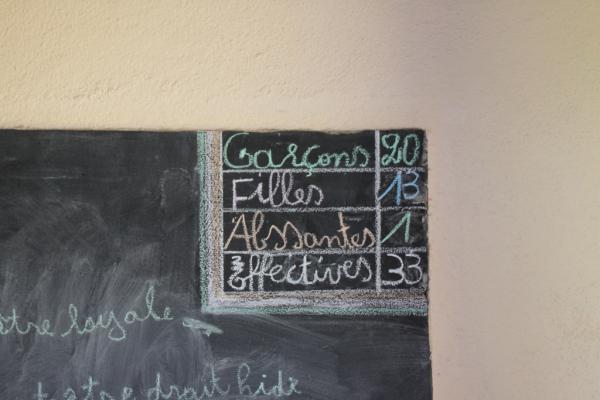 Garçons 20
Filles 13
Abssantes 1
Effectives 33
être loyale
être droit